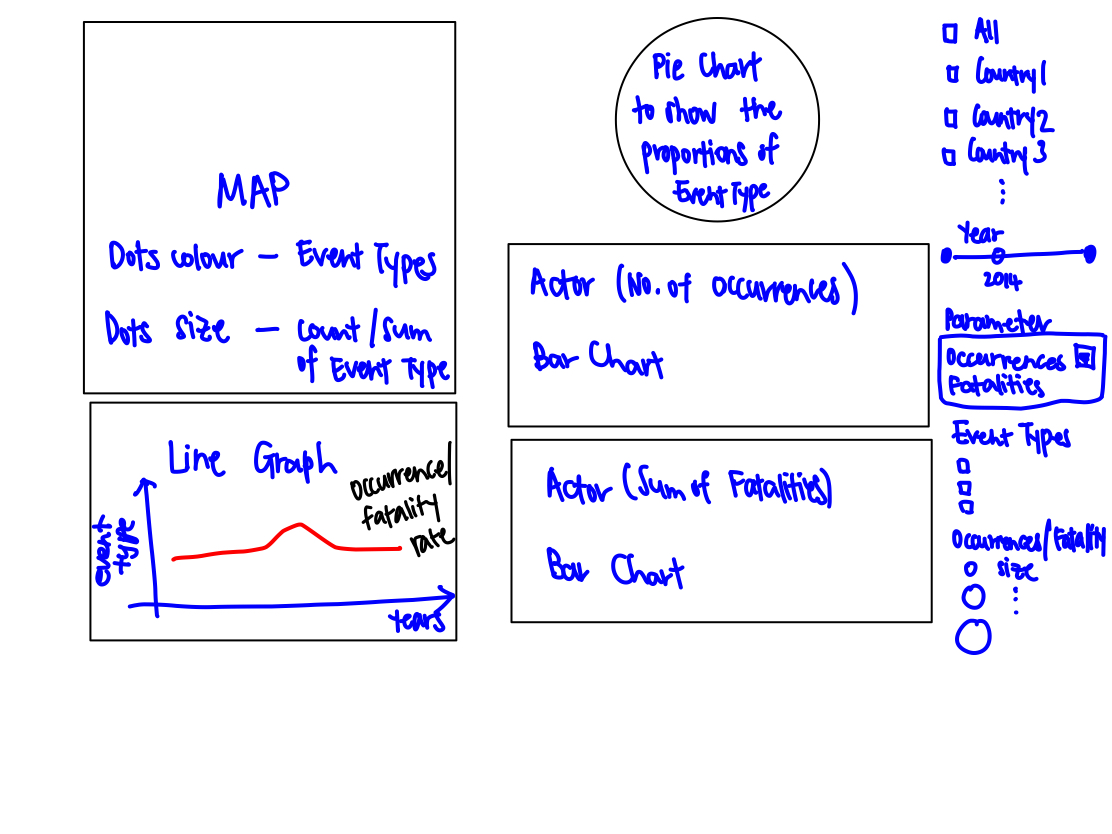 MAP
Dots colour — Event Types
Dots size — count/sum
of Event Type
Line Graph
occurrence/
fatality
rate
event
type
Years
Pie Chart
to show the
proportions of
Event Type
Actor (No. of occurrences)
Bar Chart
Actor (Sum of Fatalities)
Bar Chart
All
Country 1
Country 2
Country 3
Year
2014
Parameter
Occurrences
Fatalities
Event Types
Occurrences/Fatality
size